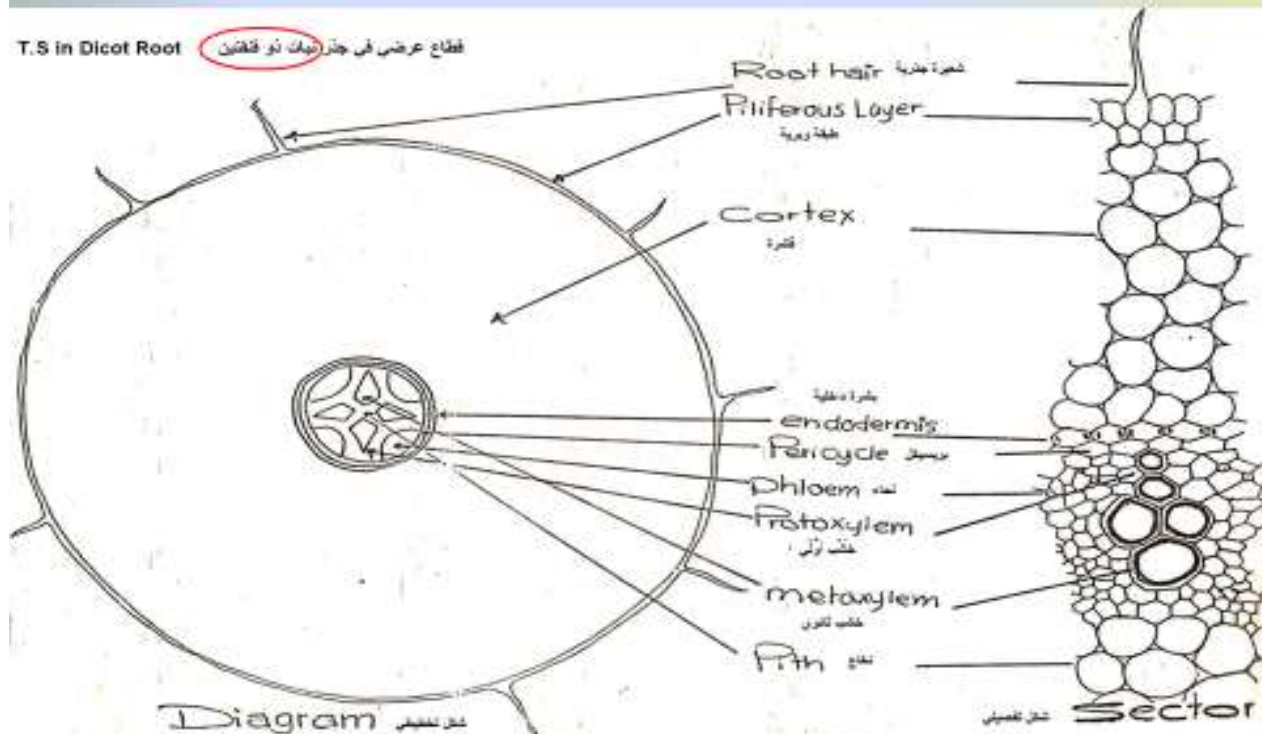 T.S in Dicot Root قطاع عرضي في جذر نبات ذو فلقتين
Root hair شعيرة جذرية
Piliferous Layer
طبقة وبرية
Cortex
قشرة
بشرة داخلية
endodermis
Pericycle بريسيكل
Phloem لحاء
Protoxylem
خشب أولي
metaxylem
خشب ثانوي
Pith نخاع
Diagram شكل تخطيطي
شكل تفصيلي Sector